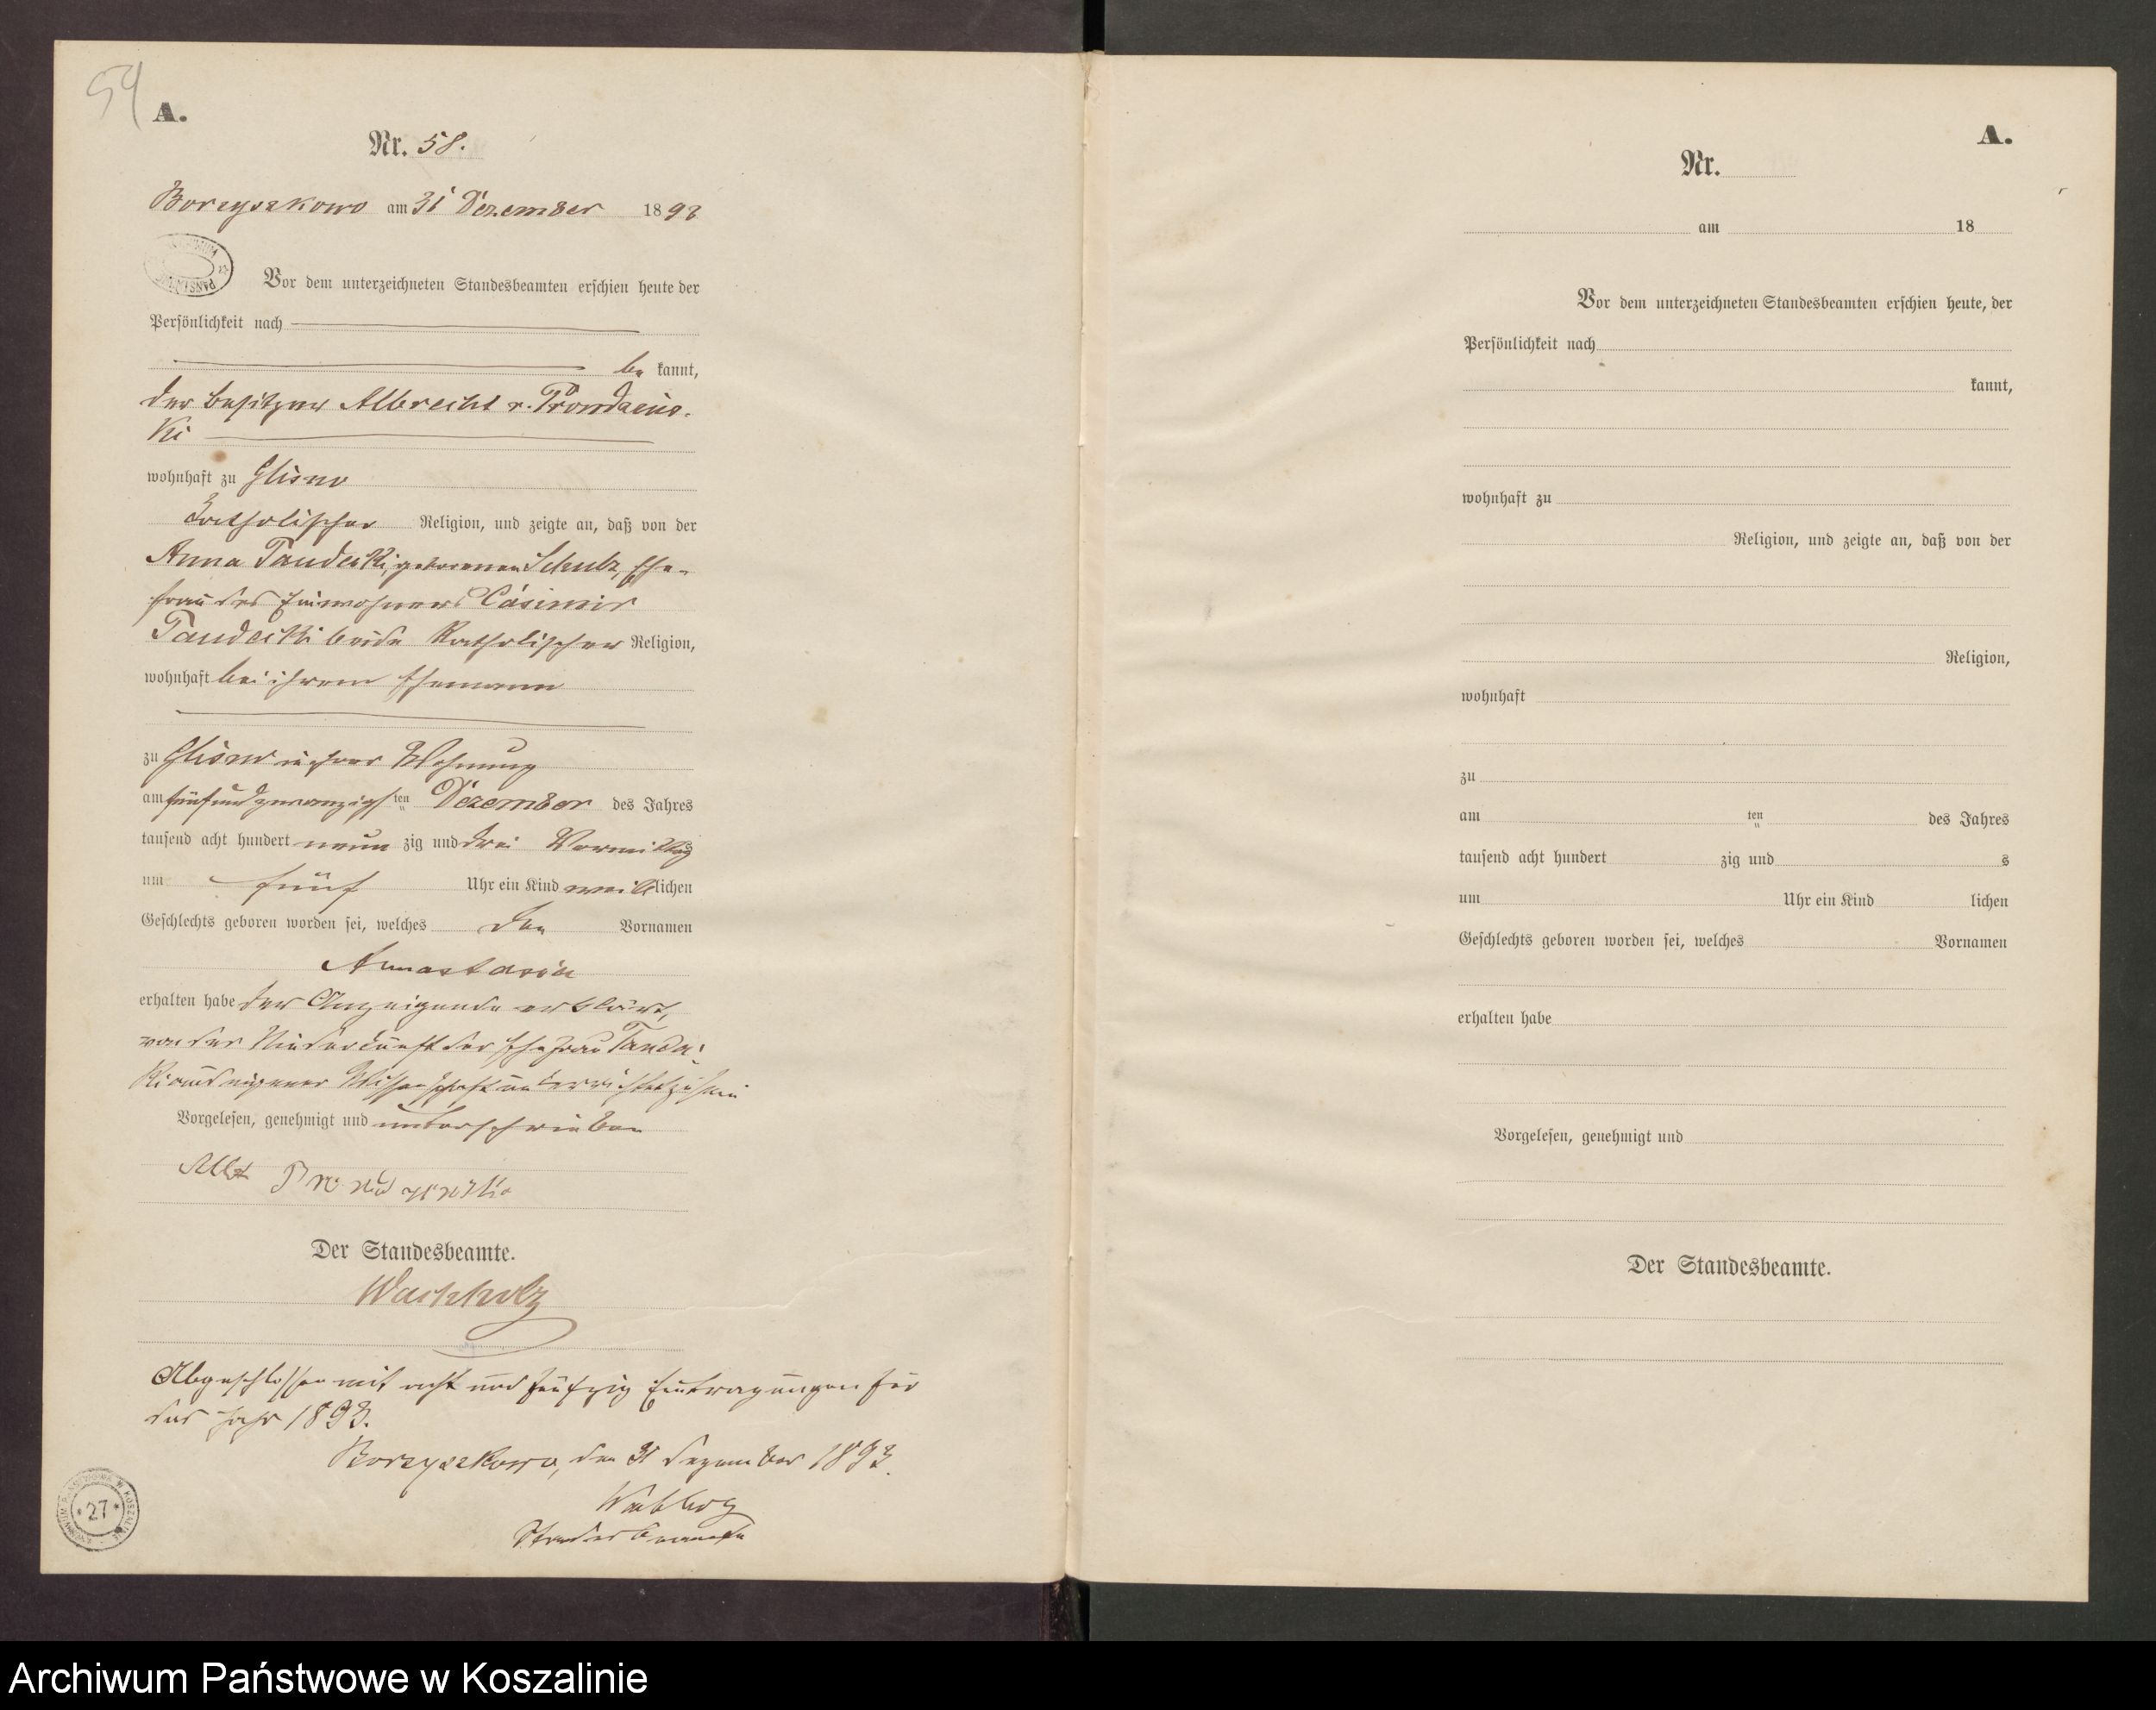 54
A.
Nr. 58.
Borzyszkowo am 31 Dezember 1893
Vor dem unterzeichneten Standesbeamten erschien heute der
Persönlichkeit nach
be kannt,
der Besitzer Albrecht v. Prondzins-
ki
wohnhaft zu Glisno
katholischer Religion, und zeigte an, daß von der
Anna Taudecki, geborenen Schulz, Ehe-
frau des Einwohners Casimir
Taudecki beide katholischer Religion,
wohnhaft bei ihrem Ehemann
zu Glisno in ihrer Wohnung
am fünfundzwanzigsten ten Dezember des Jahres
tausend acht hundert neun zig und drei Vormittag
um fünf Uhr ein Kind weiblichen
Geschlechts geboren worden sei, welches den Vornamen
Annastasia
erhalten habe der Anzeigende erklärt,
von der Niederkunft der Ehefrau Taudec
ki aus eigener Wissenschaft unterrichtet zu sein
Vorgelesen, genehmigt und unterschrieben
Der Standesbeamte.
Wachholz
Abgeschlossen mit acht und fünfzig Eintragungen für
das Jahr 1893.
Borzyszkowo, den 31 Dezember 1893.
Wachholz
Standesbeamte
27
A.
Nr.
am 18
Vor dem unterzeichneten Standesbeamten erschien heute, der
Persönlichkeit nach
kannt,
wohnhaft zu
Religion, und zeigte an, daß von der
Religion,
wohnhaft
zu
am ten des Jahres
tausend acht hundert zig und s
um Uhr ein Kind lichen
Geschlechts geboren worden sei, welches Vornamen
erhalten habe
Vorgelesen, genehmigt und
Der Standesbeamte.
Archiwum Państwowe w Koszalinie